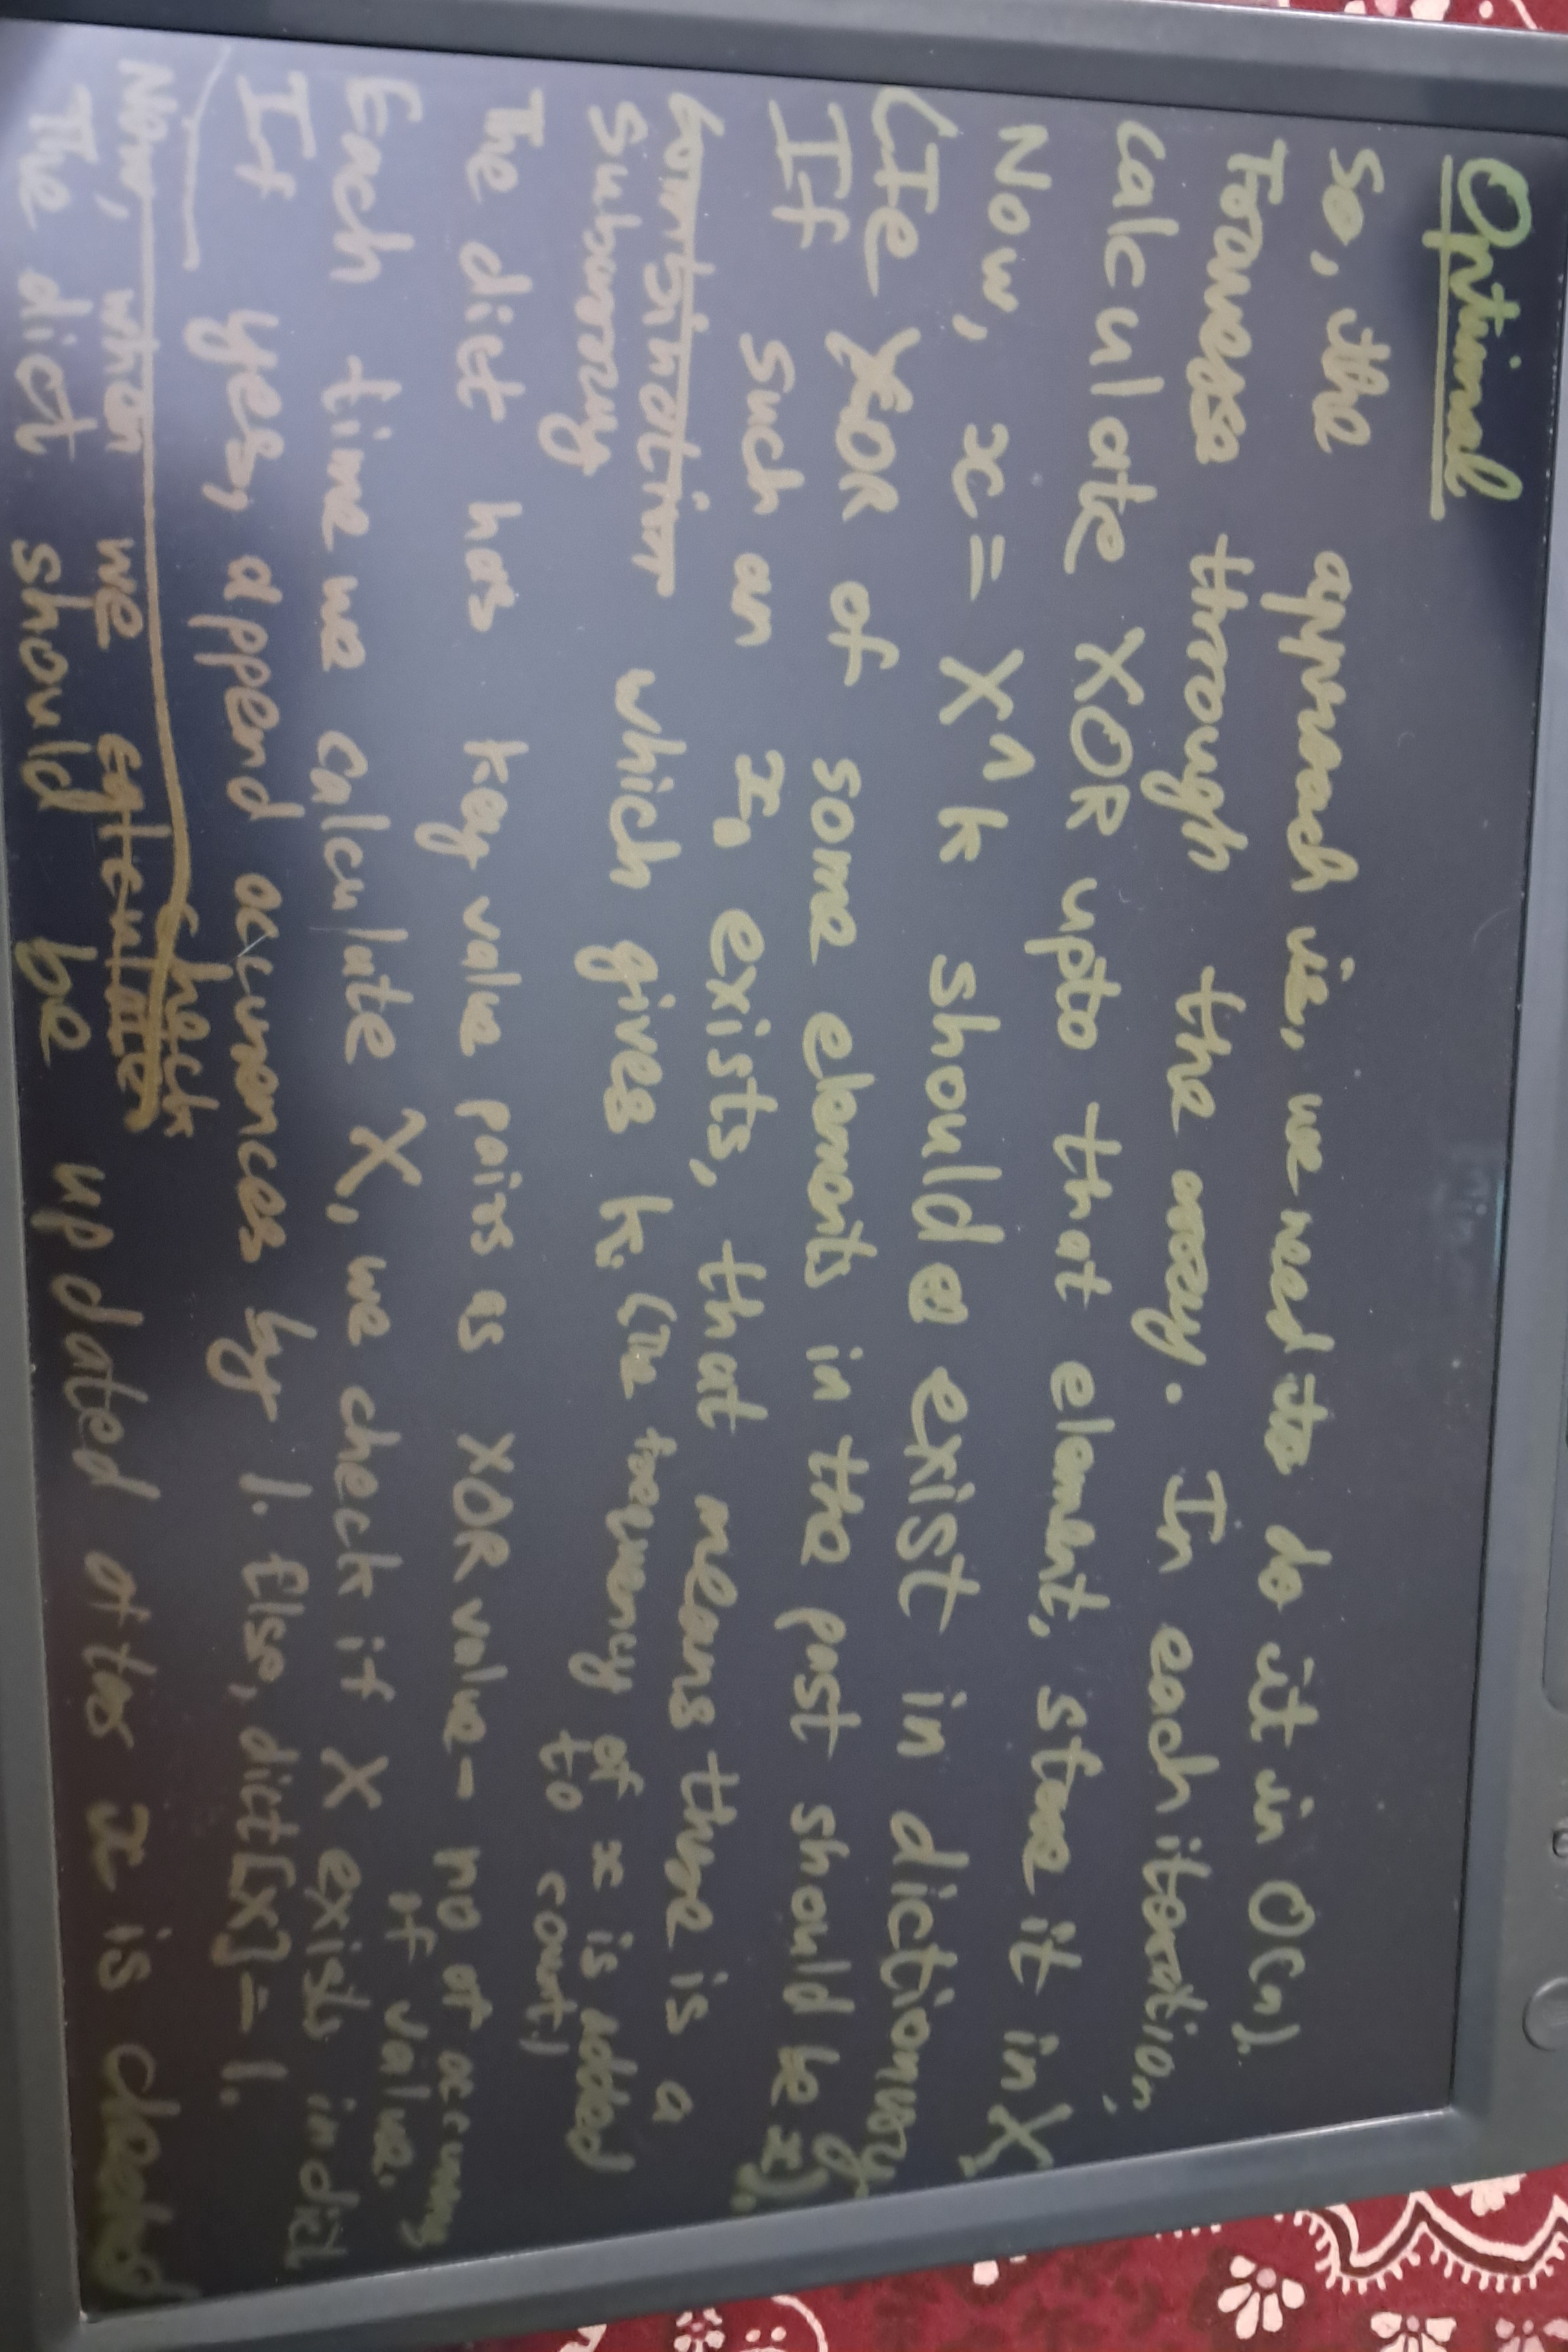 Optimal
So, the approach is, we need to do it in O(n).
Traverse through the array. In each iteration,
calculate XOR upto that element, store it in X.
Now, x = X^k should exist in dictionary
(Ie XOR of some elements in the past should be x).
If such an x exists, that means there is a
combination
subarray which gives k. (The frequency of x is added
to count)
The dict has key value pairs as XOR value - no of occurrence
of value.
Each time we calculate X, we check if X exists in dict
If yes, append occurences by 1. Else, dict[X] = 1.
check
Now, when we calculate
The dict should be updated after x is checked